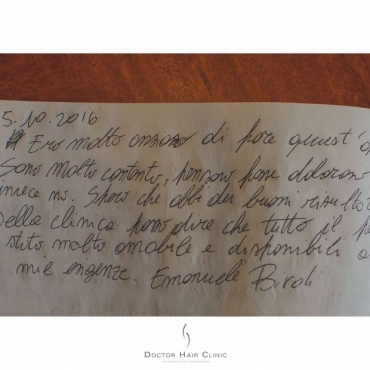 5.10.2016
Ero molto ansioso di fare quest'o
Sono molto contento, pensavo fosse doloroso
invece no. Spero che abbi dei buoni risultat
della clinica posso dire che tutto il pe
stato molto amabile e disponibili a
mie esigenze. Emanuele B
DOCTOR HAIR CLINIC